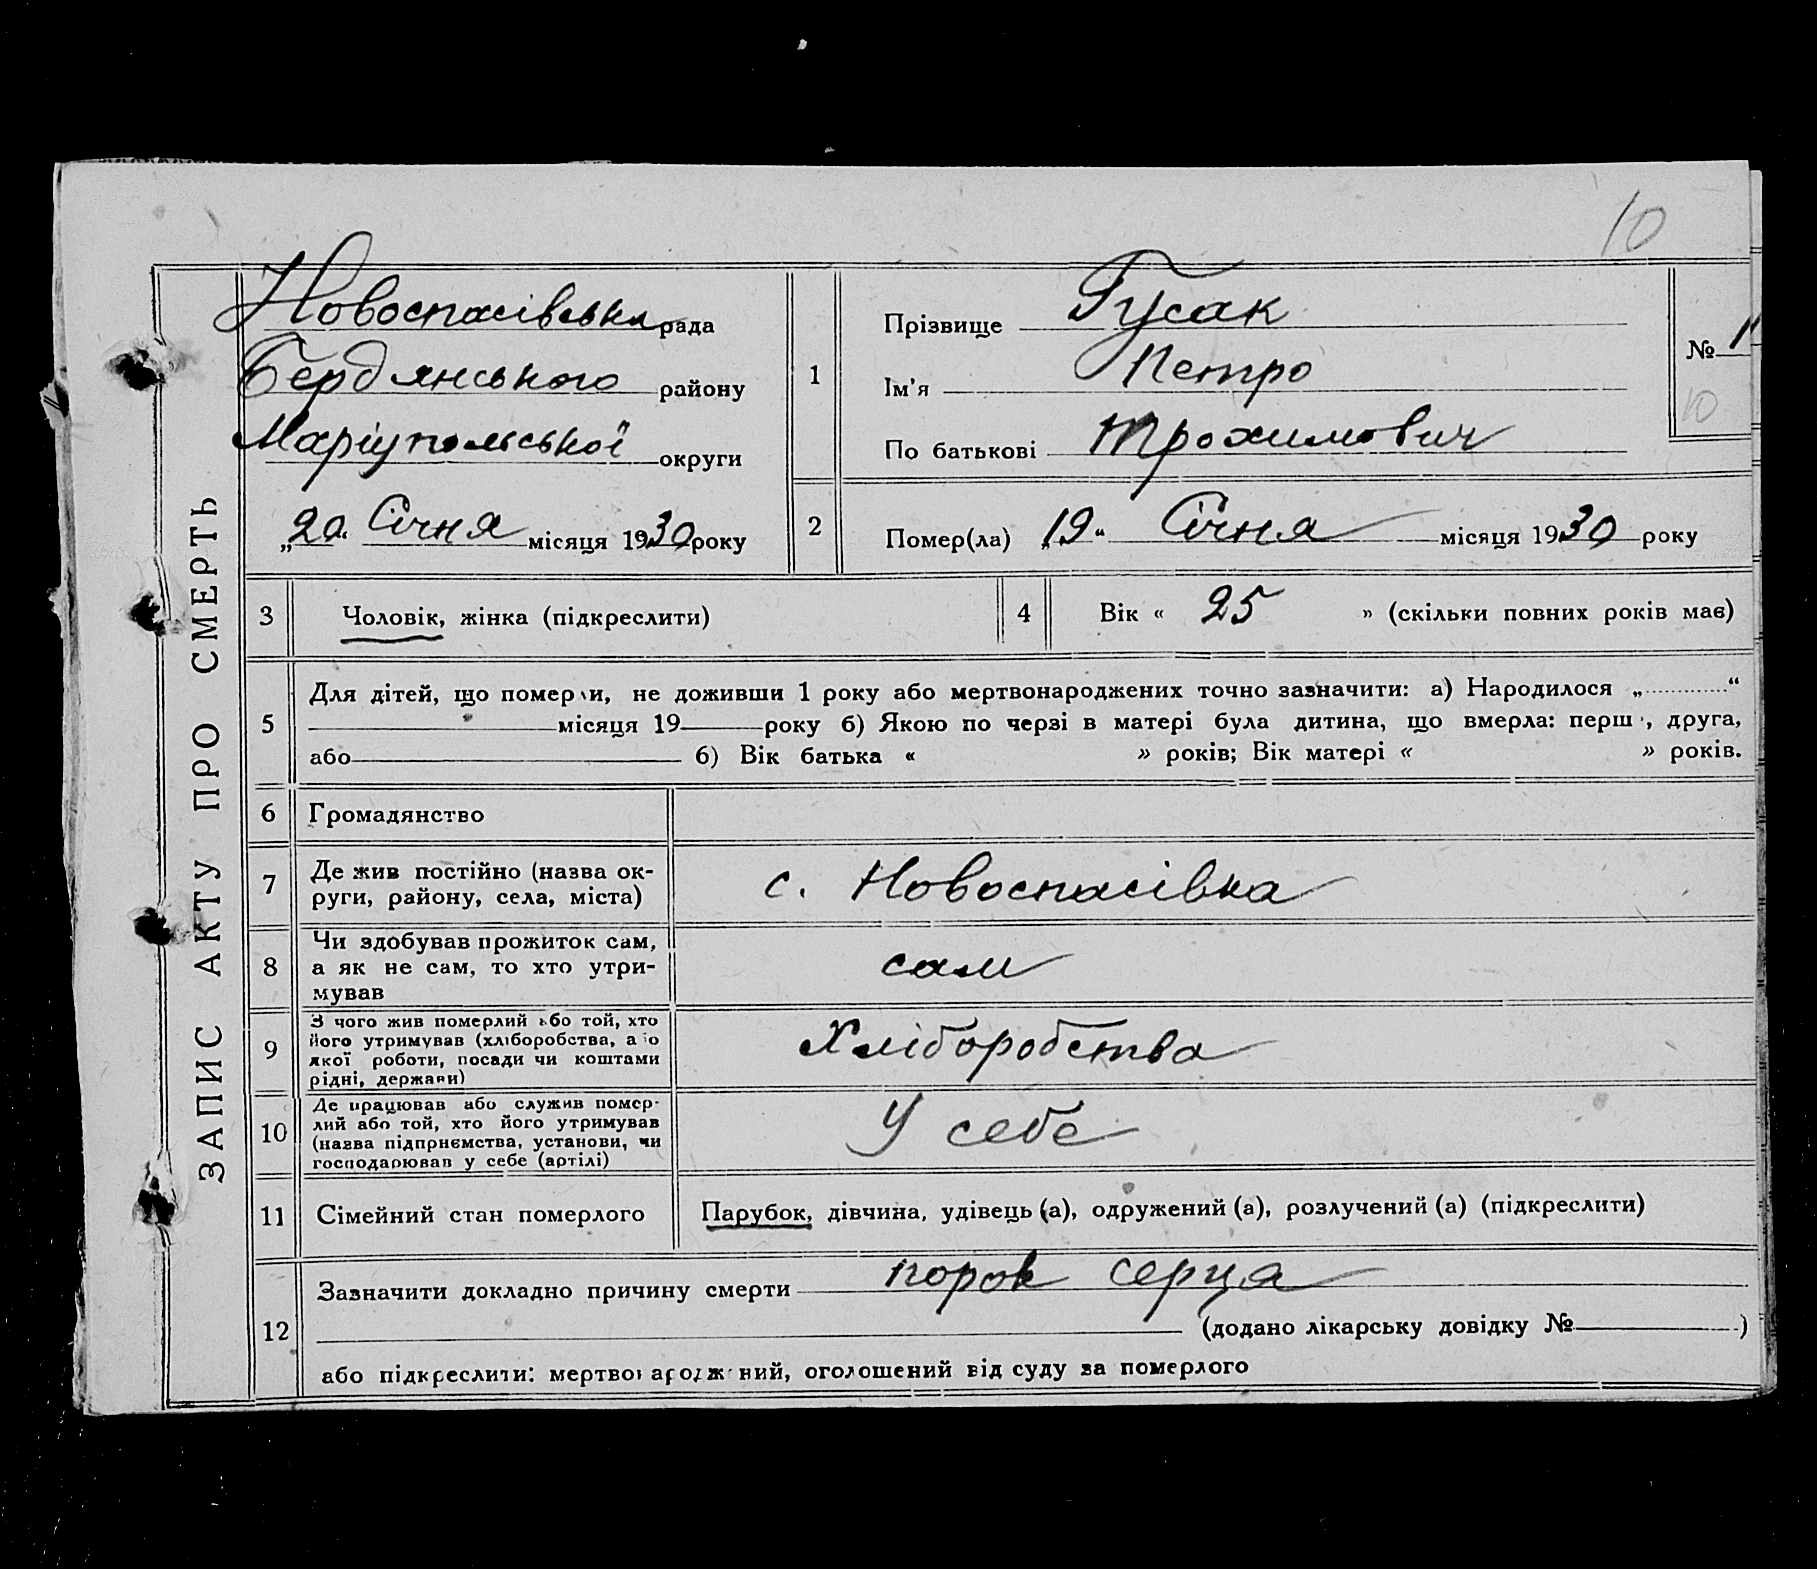 10
ЗАПИС АКТУ ПРО СМЕРТЬ
Новоспасівська рада
Бердянського району
Маріупольської округи
„20“ Січня місяця 1930 року
1
Прізвище Гусак
Ім'я Петро
По батькові Трохимович
№
10
2
Помер(ла) „19“ Січня місяця 1930 року
3 Чоловік, жінка (підкреслити)
4 Вік « 25 » (скільки повних років має)
5
Для дітей, що померли, не доживши 1 року або мертвонароджених точно зазначити: а) Народилося „ “
місяця 19 року б) Якою по черзі в матері була дитина, що вмерла: перш , друга,
або б) Вік батька « » років; Вік матері « » років.
6 Громадянство
7 Де жив постійно (назва ок-
руги, району, села, міста)
с. Новоспасівка
8 Чи здобував прожиток сам,
а як не сам, то хто утри-
мував
сам
9 З чого жив померлий або той, хто
його утримував (хліборобства, або
якої роботи, посади чи коштами
рідні, держави)
Хліборобства
10 Де працював або служив помер-
лий або той, хто його утримував
(назва підприємства, установи, чи
господарював у себе (артілі)
У себе
11 Сімейний стан померлого
Парубок, дівчина, удівець (а), одружений (а), розлучений (а) (підкреслити)
12
Зазначити докладно причину смерти порок серця
(додано лікарську довідку № )
або підкреслити: мертвонароджений, оголошений від суду за померлого